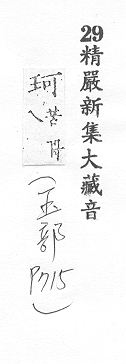 29精嚴新集大藏音
珂
苦哥
(玉部
P715)